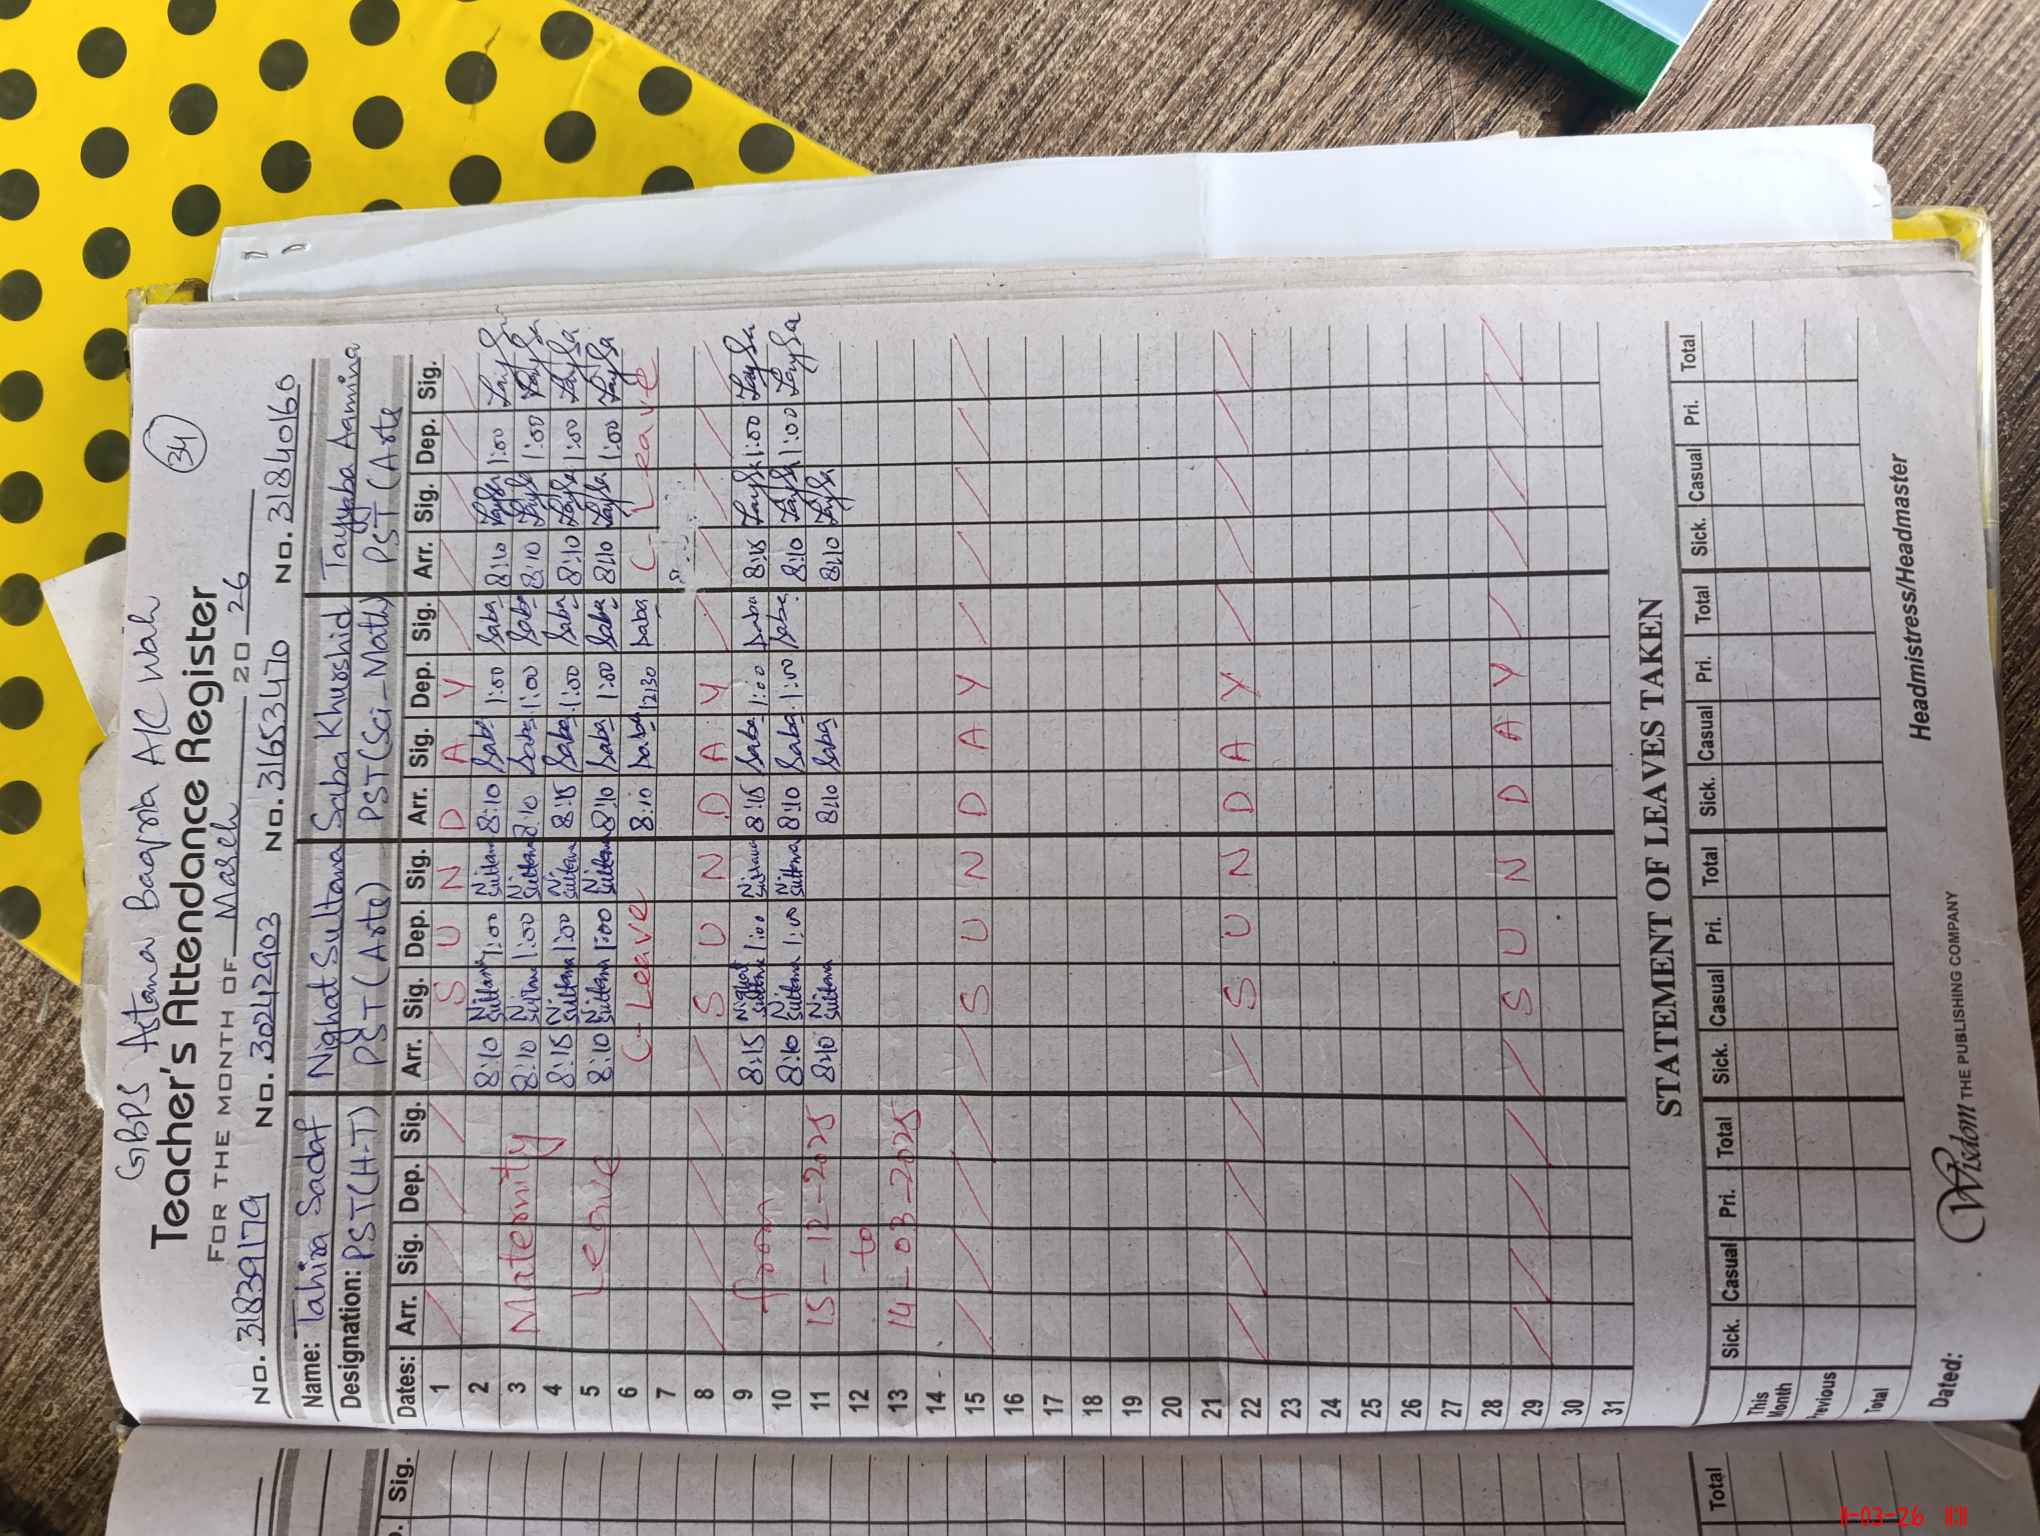 34
GBPS Astana Baqria A/C Wah
Teacher's Attendance Register
FOR THE MONTH OF March 20 26
No. 31839179 No. 30242903 No. 31653470 No. 3184060
Name: Tahira Sadaf Nighat Sultana Saba Khurshid Tayyaba Aamina
Designation: PST(H-T) PST (Arts) PST(Sci-Math) PST (Arts
Dates: Arr. Sig. Dep. Sig. Arr. Sig. Dep. Sig. Arr. Sig. Dep. Sig. Arr. Sig. Dep. Sig.
1 S U N D A Y
2 8:10 N. Sultana 1:00 N. Sultana 8:10 Saba 1:00 Saba 8:10 1:00
3 Maternity 8:10 N. Sultana 1:00 N. Sultana 8:10 Saba 1:00 Saba 8:10 1:00
4 8:15 N. Sultana 1:00 N. Sultana 8:15 Saba 1:00 Saba 8:10 1:00
5 Leave 8:10 N. Sultana 1:00 N. Sultana 8:10 Saba 1:00 Saba 8:10 1:00
6 C-Leave 8:10 Saba 12:30 Saba C-Leave
7
8 S U N D A Y
9 from 8:15 Nighat Sultana 1:00 Nighat Sultana 8:15 Saba 1:00 Saba 8:15 1:00
10 8:10 N. Sultana 1:00 N. Sultana 8:10 Saba 1:00 Saba 8:10 1:00
11 15-12-2025 8:10 N. Sultana 8:10 Saba 8:10
12 to
13 14-03-2025
14
15 S U N D A Y
16
17
18
19
20
21
22 S U N D A Y
23
24
25
26
27
28
29 S U N D A Y
30
31
STATEMENT OF LEAVES TAKEN
Sick. Casual Pri. Total Sick. Casual Pri. Total Sick. Casual Pri. Total Sick. Casual Pri. Total
This Month
Previous
Total
Dated:
Headmistress/Headmaster
Wisdom THE PUBLISHING COMPANY
. Sig.
Total